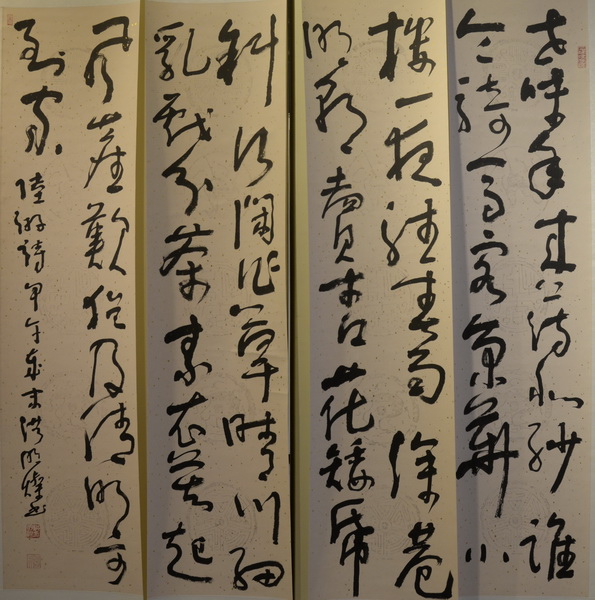 世味年來薄似紗誰
令騎馬客京華小
樓一夜聽春雨深巷
明朝賣杏花矮紙
斜行閒作草晴窗細
乳戲分茶素衣莫起
風塵歎猶及清明可
到家
陸游詩甲午歲末洪明書